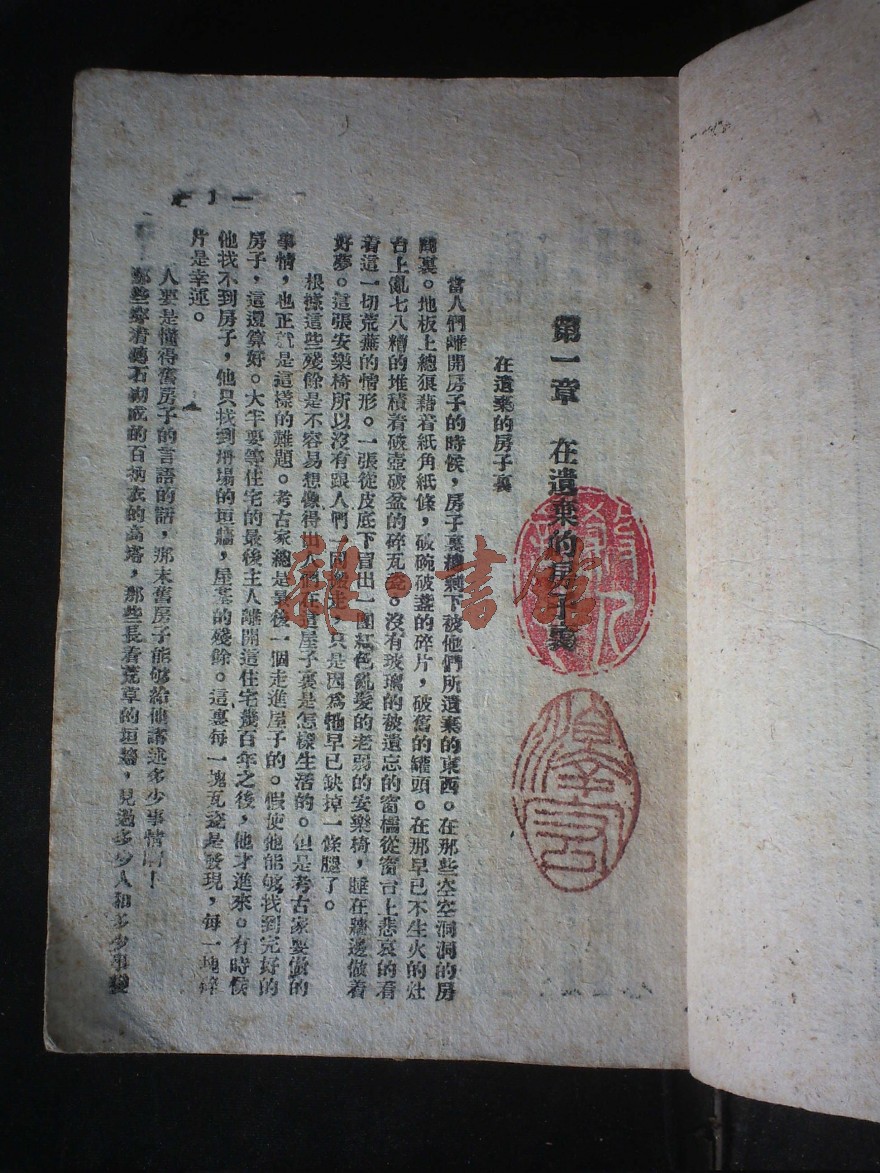 第一章 在遺棄的房子裏
在遺棄的房子裏
當人們離開房子的時候，房子裏總剩下被他們所遺棄的東西。在那些空空洞洞的房
間裏。地板上總狼藉着紙角紙條，破碗破盞的碎片，破舊的罐頭。在那早已不生火的灶
台上亂七八糟的堆積着破壺破盆的碎瓦瓷。沒有玻璃的被遺忘的窗櫺從窗台上悲哀的看
着這一切荒蕪的情形。一張從皮底下冒出一團紅色亂髮的老弱的安樂椅，睡在牆邊做着
好夢。這張安樂椅所以沒有跟人們一同搬走，只是因爲牠早已缺掉一條腿了。
根據這些殘餘是不容易想像得出人們在這屋子裏是怎樣生活的。但是考古家要做的
事情，也正就是這樣的難題。考古家總是最後一個走進屋子的。假使他能够找到完好的
房子，這還算好。大半要等住宅的最後主人離開這住宅幾百年之後，他才進來。有時候
他找不到房子，他只找到坍塌的垣牆，屋基的殘餘。這裏每一塊瓦瓷是發現，每一塊碎
片是幸運。
人要是懂得舊房子的言語的話，那末舊房子能够給他講述多少事情啊！
那些穿着石砌成的百衲衣的高塔，那些長着荒草的垣牆，見過多少人和多少事變
雜·書館